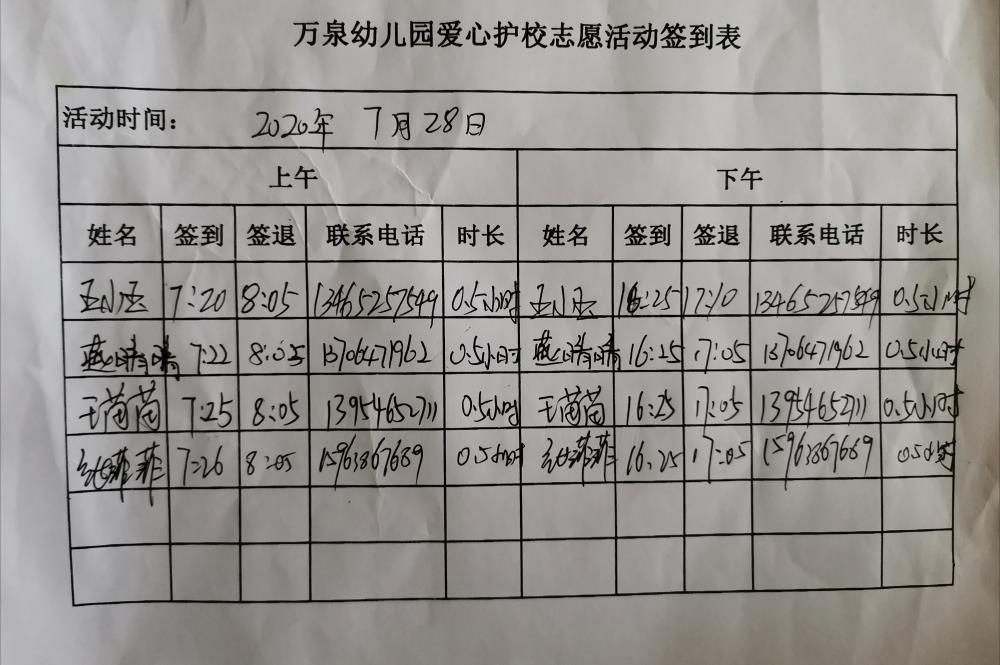 万泉幼儿园爱心护校志愿活动签到表
活动时间： 2020年 7月28日
上午 下午
姓名 签到 签退 联系电话 时长 姓名 签到 签退 联系电话 时长
王小玉 7:20 8:05 13465257549 0.5小时 王小玉 16:25 17:10 13465257549 0.5小时
燕晴晴 7:22 8:05 13706471962 0.5小时 燕晴晴 16:25 17:05 13706471962 0.5小时
王苗苗 7:25 8:05 13954652711 0.5小时 王苗苗 16:25 17:05 13954652711 0.5小时
菲菲 7:26 8:05 15963867689 0.5小时 菲菲 16:25 17:05 15963867689 0.5小时